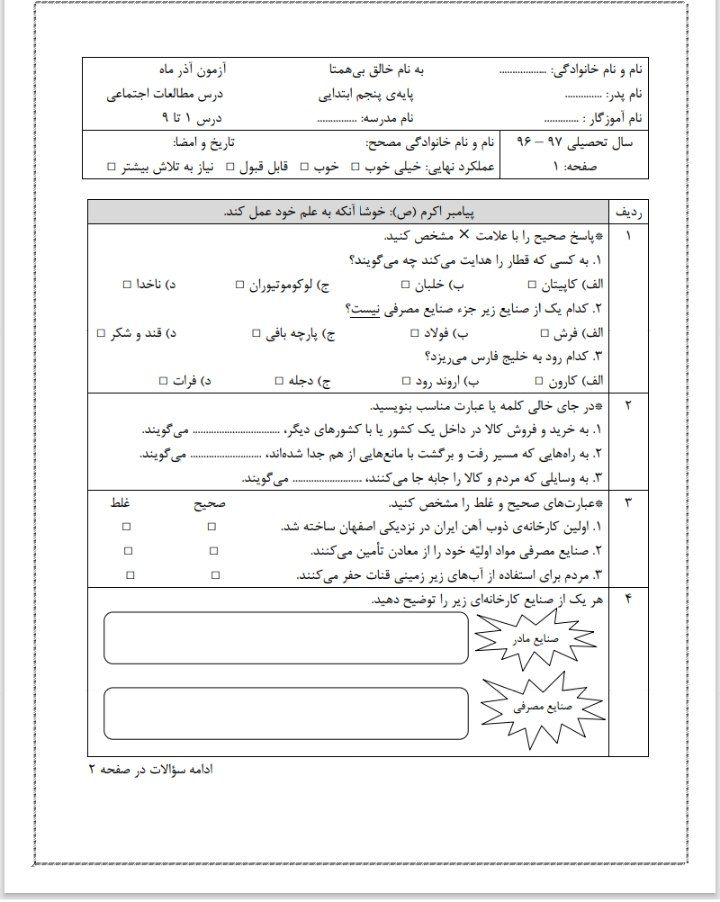 نام و نام خانوادگی: .................. به نام خالق بی‌همتا آزمون آذر ماه
نام پدر: .............. پایه‌ی پنجم ابتدایی درس مطالعات اجتماعی
نام آموزگار : ............. نام مدرسه: ............... درس ۱ تا ۹
سال تحصیلی ۹۷ – ۹۶ نام و نام خانوادگی مصحح: تاریخ و امضا:
صفحه: ۱ عملکرد نهایی: خیلی خوب □ خوب □ قابل قبول □ نیاز به تلاش بیشتر □
ردیف پیامبر اکرم (ص): خوشا آنکه به علم خود عمل کند.
۱ *پاسخ صحیح را با علامت × مشخص کنید.
۱. به کسی که قطار را هدایت می‌کند چه می‌گویند؟
الف) کاپیتان □ ب) خلبان □ ج) لوکوموتیوران □ د) ناخدا □
۲. کدام یک از صنایع زیر جزء صنایع مصرفی نیست؟
الف) فرش □ ب) فولاد □ ج) پارچه بافی □ د) قند و شکر □
۳. کدام رود به خلیج فارس می‌ریزد؟
الف) کارون □ ب) اروند رود □ ج) دجله □ د) فرات □
۲ *در جای خالی کلمه یا عبارت مناسب بنویسید.
۱. به خرید و فروش کالا در داخل یک کشور یا با کشورهای دیگر، ................................ می‌گویند.
۲. به راه‌هایی که مسیر رفت و برگشت با مانع‌هایی از هم جدا شده‌اند، .......................... می‌گویند.
۳. به وسایلی که مردم و کالا را جابه جا می‌کنند، .......................... می‌گویند.
۳ *عبارت‌های صحیح و غلط را مشخص کنید. صحیح غلط
۱. اولین کارخانه‌ی ذوب آهن ایران در نزدیکی اصفهان ساخته شد. □ □
۲. صنایع مصرفی مواد اولیّه خود را از معادن تأمین می‌کنند. □ □
۳. مردم برای استفاده از آب‌های زیر زمینی قنات حفر می‌کنند. □ □
۴ هر یک از صنایع کارخانه‌ای زیر را توضیح دهید.
صنایع مادر
صنایع مصرفی
ادامه سؤالات در صفحه ۲